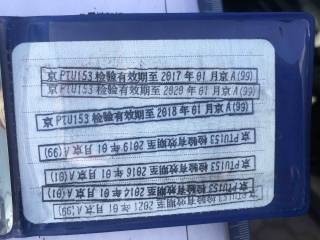 京PTU153检验有效期至2017年01月京A(99)
京PTU153检验有效期至2020年01月京A(99)
京PTU153检验有效期至2018年01月京A(99)
京PTU153检验有效期至2019年01月京A(99)
京PTU153检验有效期至2015年01月京A(01)
京PTU153检验有效期至2014年01月京A(01)
京PTU153检验有效期至2021年01月京A(99)